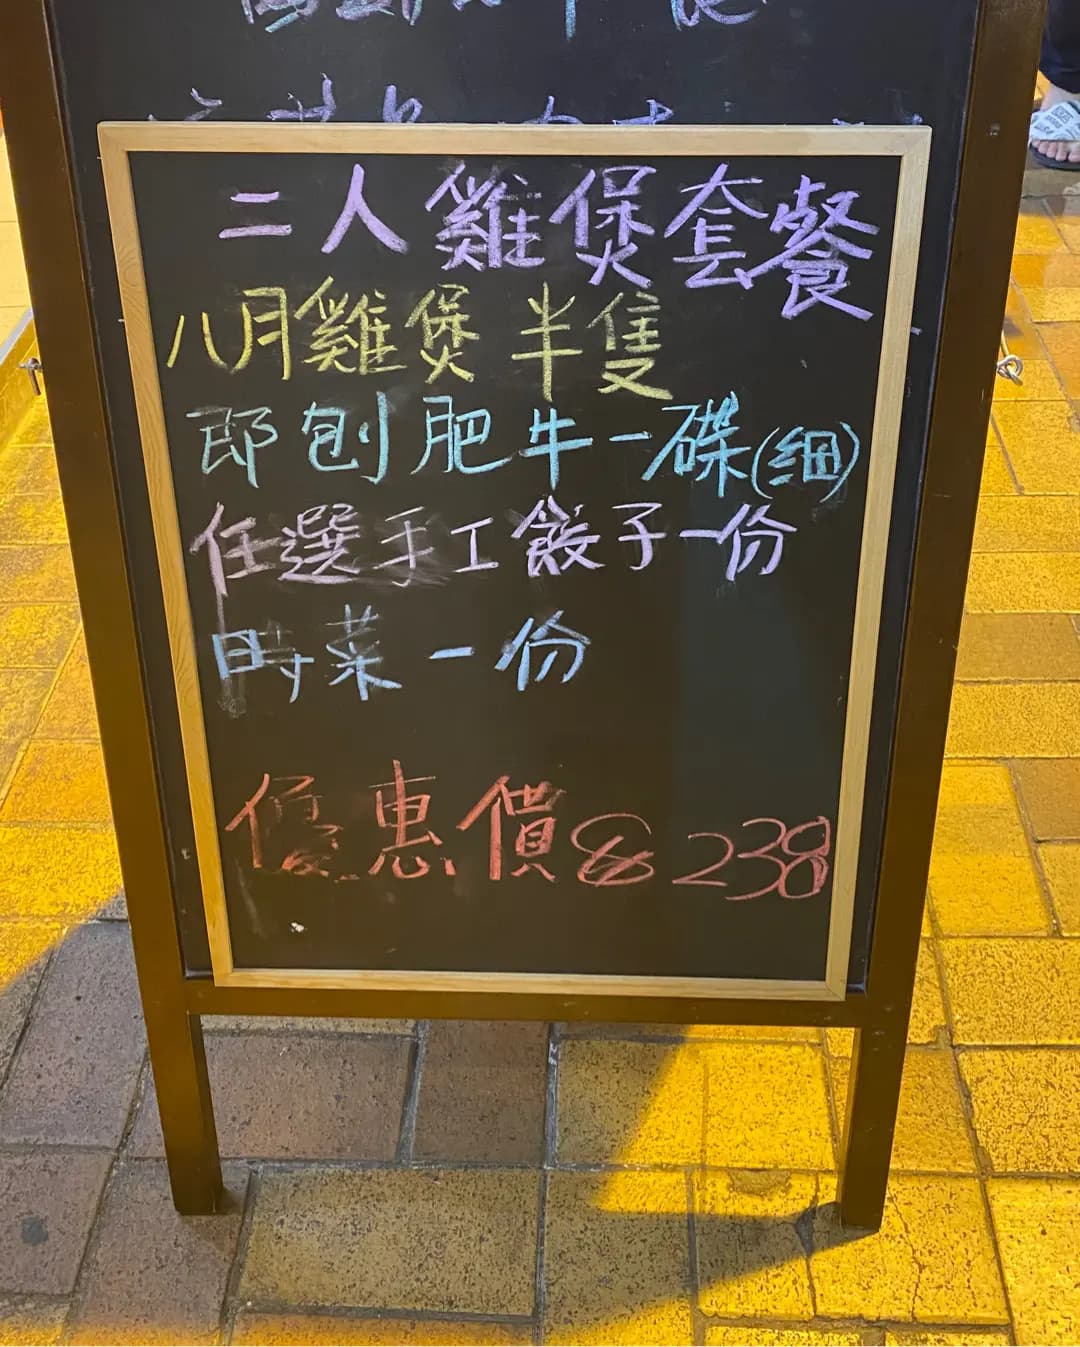 二人雞煲套餐
八月雞煲半隻
即刨肥牛一碟(細)
任選手工餃子一份
時菜一份
優惠價$238